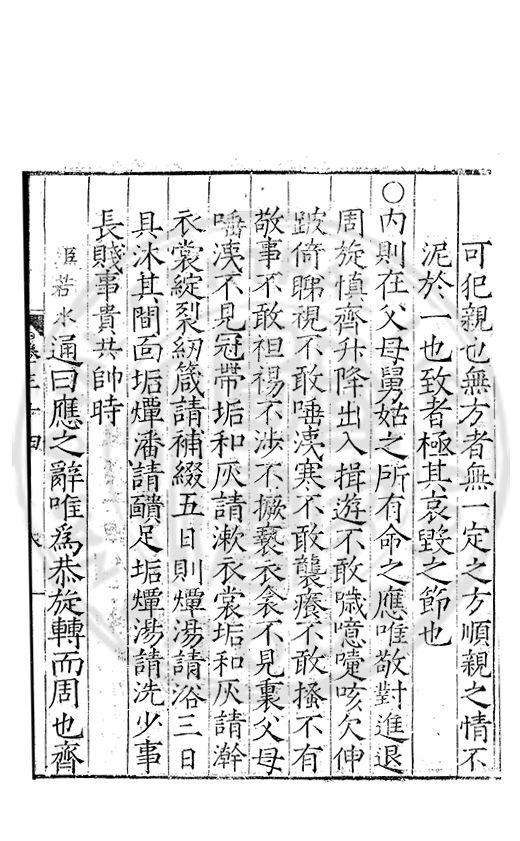 可犯親也無方者無一定之方順親之情不
泥於一也致者極其哀毀之節也
○內則在父母舅姑之所有命之應唯敬對進退
周旋慎齊升降出入揖遊不敢噦噫嚏咳欠伸
跛倚睇視不敢唾洟寒不敢襲癢不敢搔不有
敬事不敢袒裼不涉不撅褻衣衾不見裏父母
唾洟不見冠帶垢和灰請漱衣裳垢和灰請澣
衣裳綻裂紉箴請補綴五日則燂湯請浴三日
具沐其間面垢燂潘請靧足垢燂湯請洗少事
長賤事貴共帥時
若水通曰應之辭唯為恭旋轉而周也齊